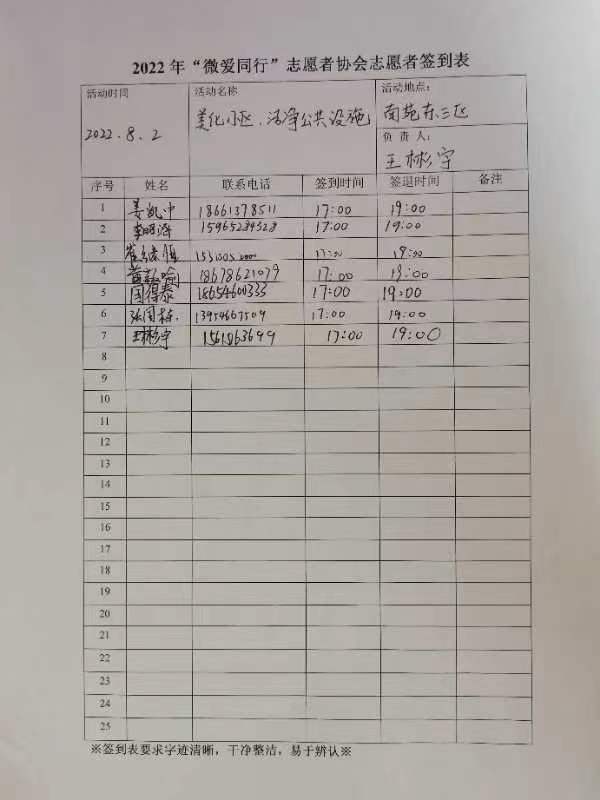 2022年“微爱同行”志愿者协会志愿者签到表
活动时间 活动名称 活动地点:
2022.8.2 美化小区、洁净公共设施 南苑东三区
负责人:
王彬宇
序号 姓名 联系电话 签到时间 签退时间 备注
1 姜凯中 18661378511 17:00 19:00
2 15965284328 17:00 19:00
3 17:00 19:00
4 18678621079 17:00 19:00
5 国得泰 18654600333 17:00 19:00
6 张国栋 13954667509 17:00 19:00
7 王彬宇 17:00 19:00
8
9
10
11
12
13
14
15
16
17
18
19
20
21
22
23
24
25
※签到表要求字迹清晰，干净整洁，易于辨认※